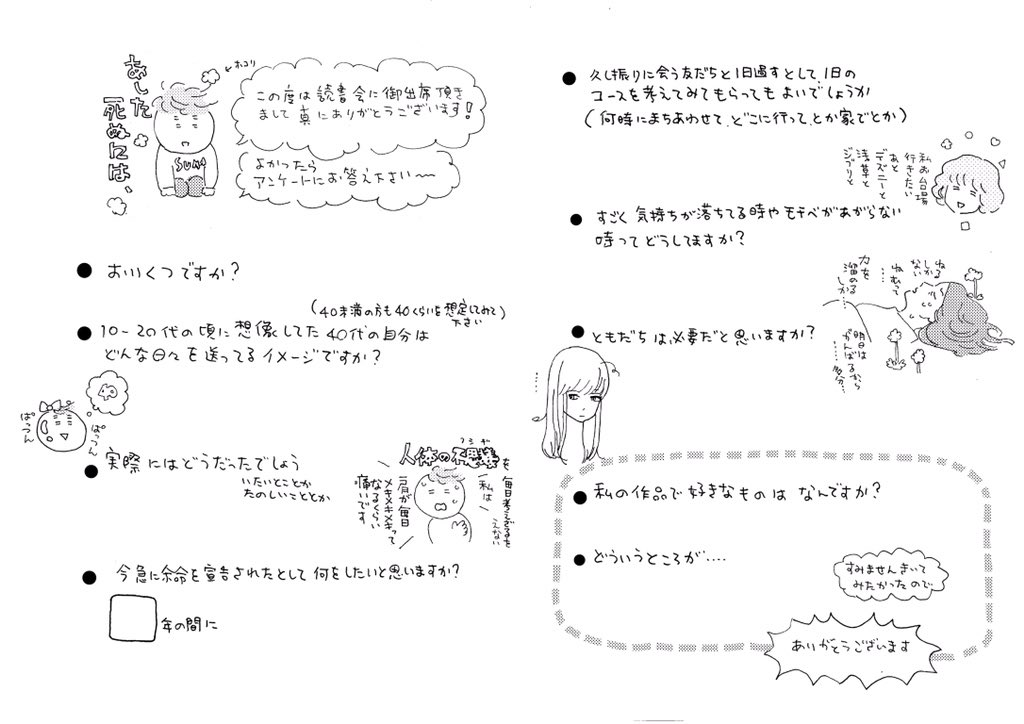 あした
死ぬには、
←ホコリ
この度は読書会に御出席頂き
まして真にありがとうございます!
よかったら
アンケートにお答え下さい〜〜
SUN
● おいくつですか?
(40才満の方も40くらいを想定してみて下さい)
● 10-20代の頃に想像してた40代の自分は
どんな日々を送ってるイメージですか?
ぱっつん
ぱっつん
● 実際にはどうだったでしょう
いたいとことか
たのしいこととか
フシギ
人体の不思議を
毎日考えざるをえない
私は
肩が毎日
メキメキメキって
なるくらい
痛いです
● 今急に余命を宣告されたとして何をしたいと思いますか?
年の間に
● 久し振りに会う友だちと1日過すとして、1日の
コースを考えてみてもらってもよいでしょうか
(何時にまちあわせて、どこに行って、とか家でとか)
私お台場
行きたい
あと
ディズニーと
浅草と
ジブリと
● すごく気持ちが落ちてる時やモチベがあがらない
時ってどうしてますか?
ねる
しか
ない
ねむって
……
力を
溜めるしか…
明日は
がんばるから
……多分…
● ともだちは必要だと思いますか?
……
● 私の作品で好きなものはなんですか?
● どういうところが....
すみませんきいて
みたかったので
ありがとうございます